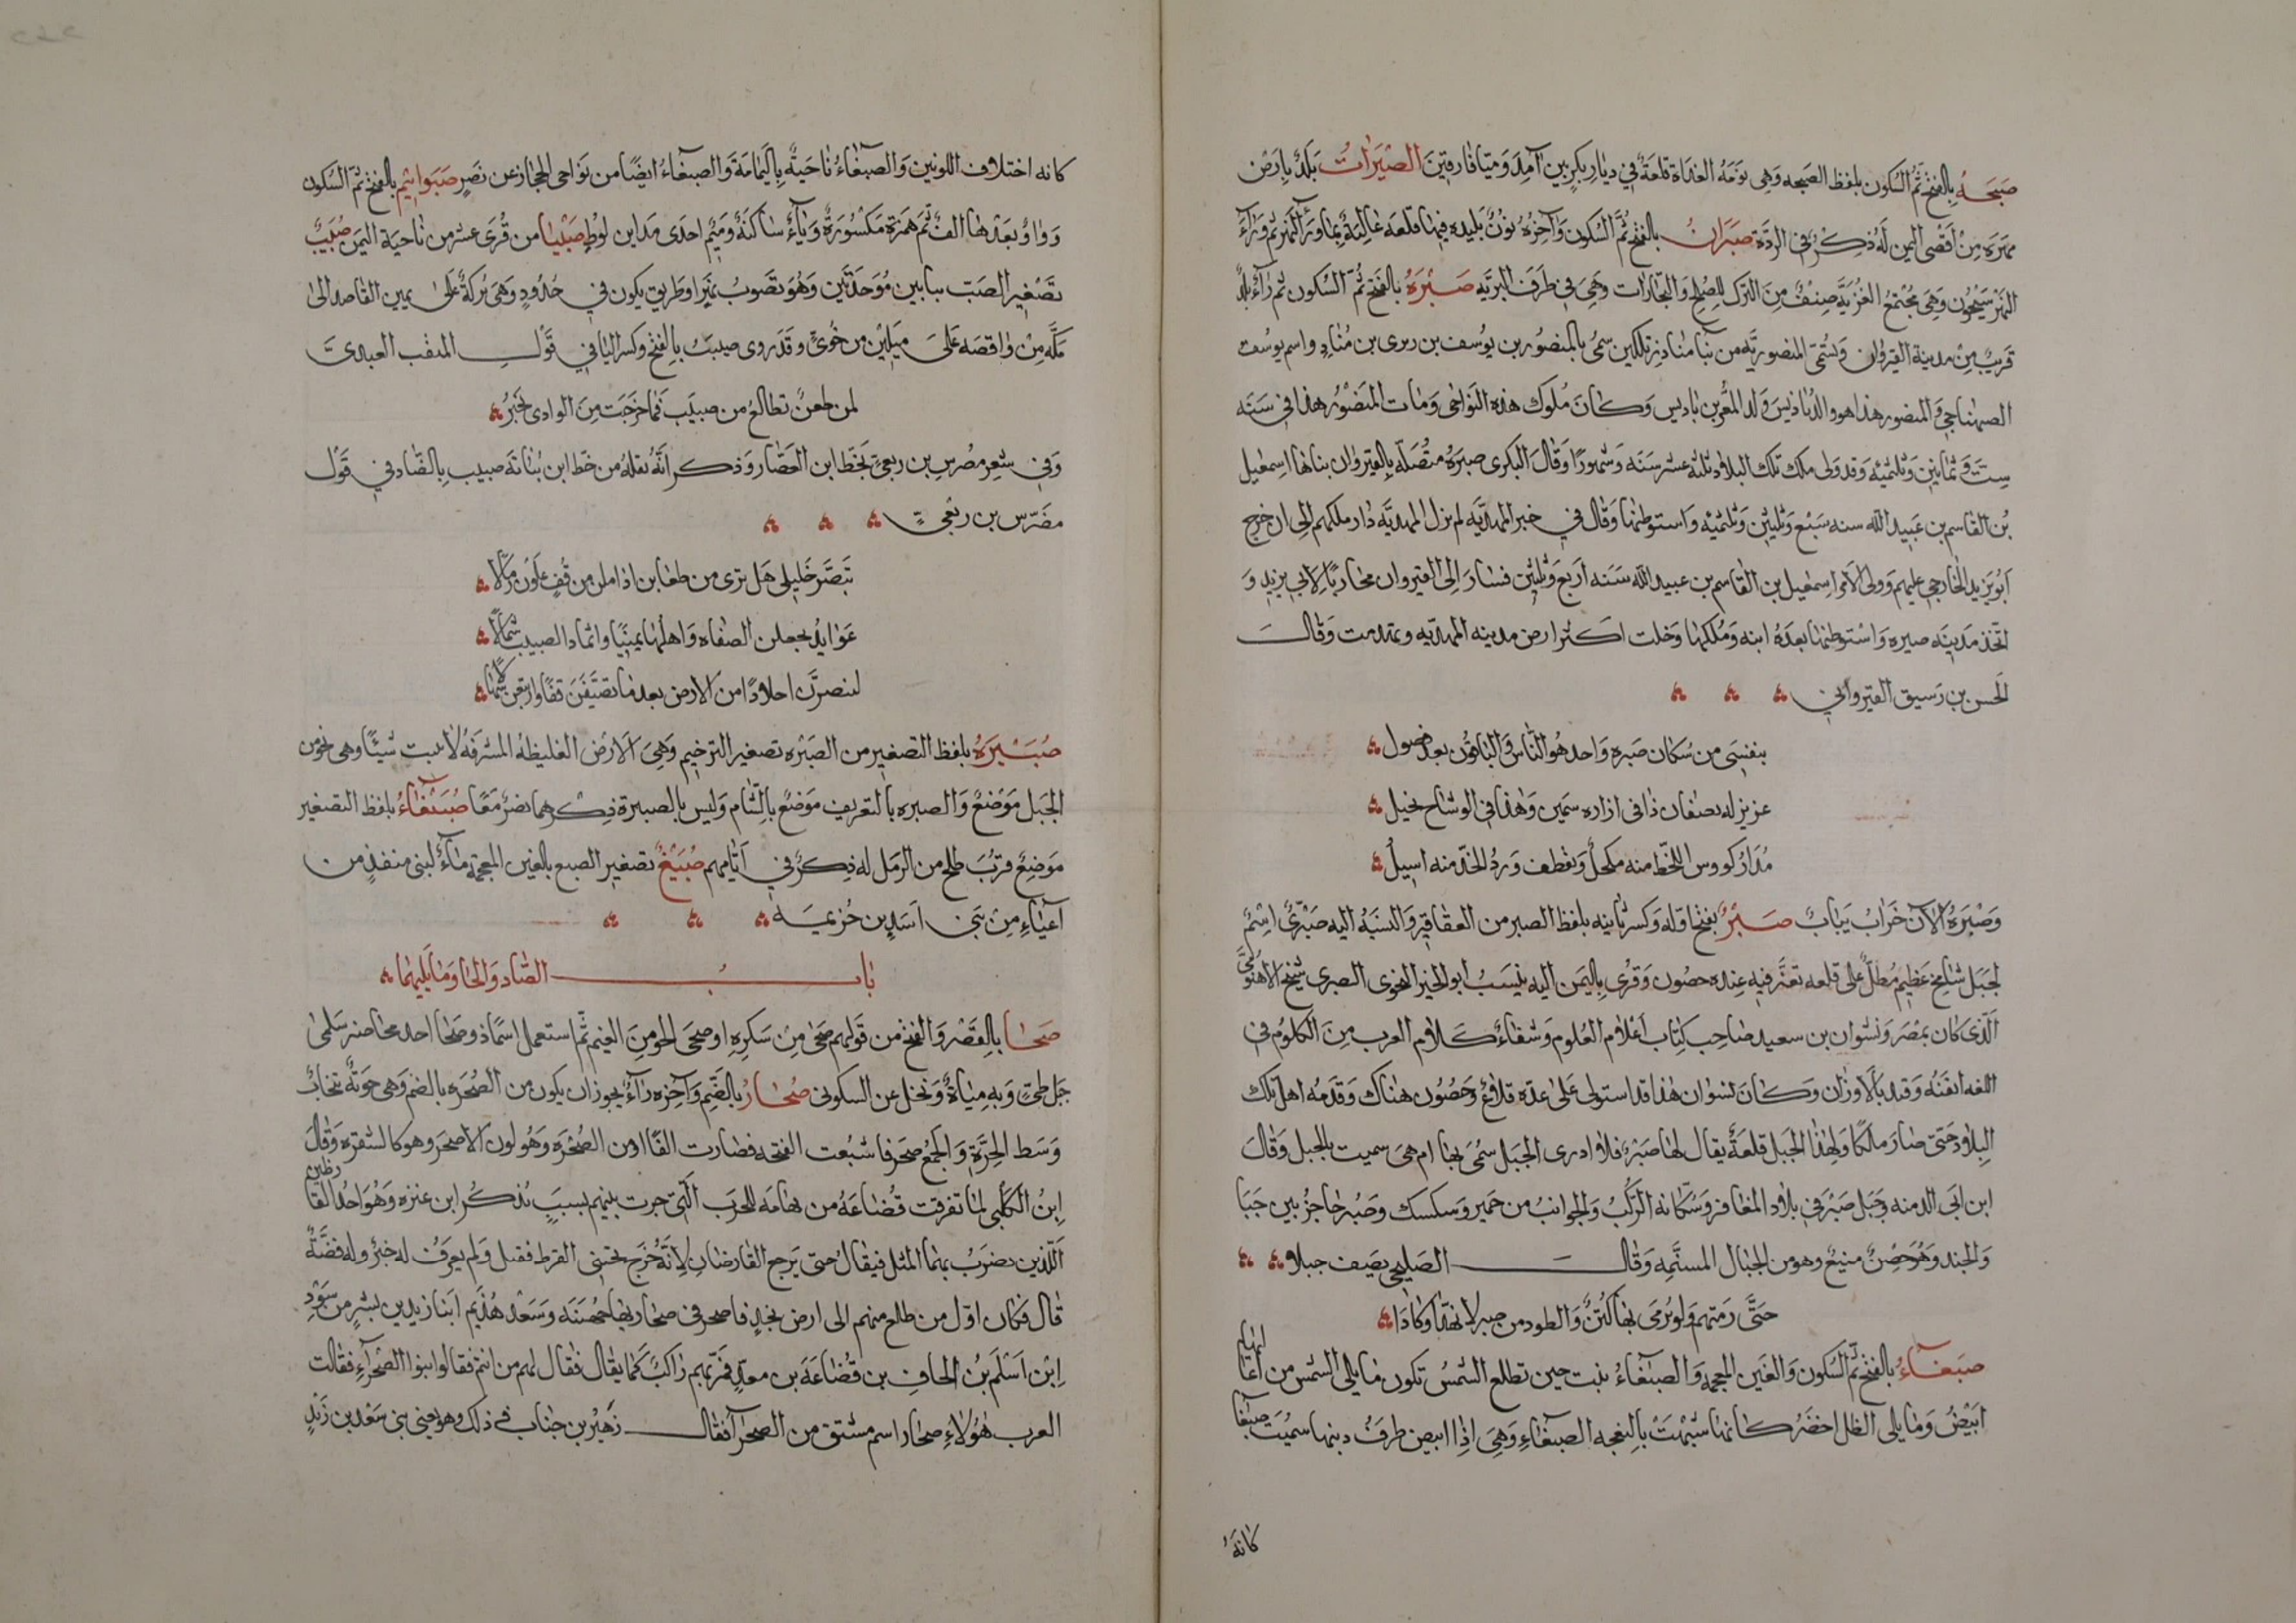 صبحه بالفتح ثم السكون بلفظ الصبحه وهى نومه الغداة قلعة في ديار بكر بين آمد وميافارقين الصبرات بلد بارض
مهره من اقصى اليمن له ذكر في الردة صبران بالفتح ثم السكون وآخره نون بليده فيها قلعه عالية بما وراء النهر ثم وراء
النهر سيحون وهى مجتمع الغزية صنف من الترك للصلح والتجارات وهى في طرف البريه صبره بالفتح ثم السكون ثم راء بلد
قريب من مدينة القيروان وتسمى المنصوريه من بنا مناد بن بلكين سمى بالمنصور بن يوسف بن زيرى بن مناد واسم يوسف
الصنهاجى والمنصور هذا هو والد باديس ولد المعز بن باديس وكان ملوك هذه النواحى ومات المنصور هذا في سنه
ست وثمانين وثلثميه وقد ولى ملك تلك البلاد ثلثه عشر سنه وشهورا وقال البكرى صبره متصله بالقيروان بناها اسمعيل
بن القاسم بن عبيد الله سنه سبع وثلثين وثلثميه واستوطنها وقال في خبر المهديه لم يزل المهديه دار ملكهم الى ان خرج
ابو يزيد الخارجى عليهم وولى الامر اسمعيل بن القاسم بن عبيد الله سنه اربع وثلثين فسار الى القيروان محاربا لابى يزيد و
اتخذ مدينه صبره واستوطنها بعده ابنه وملكها وخلت اكثر ارض مدينه المهديه وتهدمت وقال
الحسن بن رسيق القيروانى
بنفسى من سكان صبره واحد هو الناس والباقون بعد فضول
عزيز له نصفان ذا في ازاره سمين وهذا في الوشاح نحيل
مدار كووس اللحظ منه مكحل وتقطف ورد الخد منه اسيل
وصبره الآن خراب يباب صبر بفتح اوله وكسر ثانيه بلفظ الصبر من العقاقير والنسبه اليه صبرى اسم
لجبل شامخ عظيم مطل على قلعه تعز فيه عنده حصون وقرى باليمن اليه ينسب ابو الخير النحوى الصبرى شيخ الاهنومى
الذى كان بمصر ونشوان بن سعيد صاحب كتاب اعلام العلوم وشفاء كلام العرب من الكلوم في
اللغه اتقنه وقيد بالاوزان وكان نشوان هذا قد استولى على عدة قلاع وحصون هناك وقدمه اهل تلك
البلاد حتى صار ملكا ولهذا الجبل قلعة يقال لها صبر فلا ادرى الجبل سمى بها ام هى سميت بالجبل وقال
ابن ابى الدمنه وجبل صبر في بلاد المعافر وسكانه الركب والحوانب من حمير وسكسك وصبر حاجز بين جبا
والجند وهو حصن منيع وهو من الجبال المسنمه وقال الصليحى يصف جبلا
حتى رمتهم ولو يرمى بها كثن والطود من صبر لا نهد او كادا
صبغاء بالفتح ثم السكون والغين المعجمه والصبغاء نبت حين تطلع الشمس تكون ما يلى الشمس من اعاليها
ابيض وما يلى الظل اخضر كانها شبهت بالنعجه الصبغاء وهى اذا ابيض طرف ذنبها سميت صبغا
كانه
كانه اختلاف اللونين والصبغاء ناحية باليمامة والصبغاء ايضا من نواحى الحجاز عن نصر صبوائيم بالفتح ثم السكون
وواو بعدها الف ثم همزة مكسورة وياء ساكنة وميم احدى مداين لوط صبيا من قرى عشر من ناحية اليمن صبيب
تصغير الصب ببابين موحدتين وهو تصوب نهر او طريق يكون في حدود وهى بركة على يمين القاصد الى
مكه من واقصه على ميلين من خوى وقد روى صبيب بالفتح وكسر اليا في قول المثقب العبدى
لمن ظعن تطالع من صبيب فما خرجت من الوادى لحين
وفي شعر مضرس بن ربعى بخط ابن العصار وذكر انه نقله من خط ابن نباتة صبيب بالضاد في قول
مضرس بن ربعى
تبصر خليلى هل ترى من ظعاين اذا ملن من قف علون رمالا
عوايد يجعلن الصفاه واهلها يمينا واثماد الصبيب شمالا
لينصرن احلادا من الارض بعد ما تصيفن قفا وارتبعن سهالا
صبيره بلفظ التصغير من الصبره تصغير الترخيم وهى الارض الغليظه المشرفه لا نبت شيئا وهى نحو من
الجبل موضع والصبره بالتعريف موضع بالشام وليس بالصبيرة ذكرهما نصر معا صبيغاء بلفظ التصغير
موضع قرب طلح من الرمل له ذكر في ايامهم صبيغ تصغير الصبغ بالغين المعجمة ماء لبنى منقذ من
اعياء من بنى اسد بن خزيمه
باب الصاد والحا وما يليهما
صحا بالقصر والفتح من قولهم صحى من سكره او صحى الجو من الغيم ثم استعمل اسما ذو صحا احد محاضر سلمى
جبل طى وبه مياة ونخل عن السكونى صحار بالضم وآخره راء يجوز ان يكون من الصحره بالضم وهى جوبة تنجاب
وسط الحرة والجمع صحر فاشبعت الفتحه فصارت الفا او من الصحره وهو لون الاصحر وهو كالشقره وقال
ابن الكلبى لما تفرقت قضاعه من تهامه للحرب التى جرت بينهم بسبب يذكر ابن عنزه وهو احد القارظين
الذين يضرب بهما المثل فيقال حتى يرجع القارظان لانه خرج يجتنى القرظ فقتل ولم يعرف له خبر وله قصة
قال فكان اول من طلع منهم الى ارض نجد فاصحر في صحاريها جهينه وسعد هذيم ابنا زيد بن بشر من سود
ابن اسلم بن الحاف بن قضاعه بن معد فمر بهم راكب كما يقال فقال لهم من انتم فقالوا بنو الصحراء فقالت
العرب هولاء صحار اسم مشتق من الصحرا فقال زهير بن جناب في ذلك وهو يعنى بنى سعد بن زيد